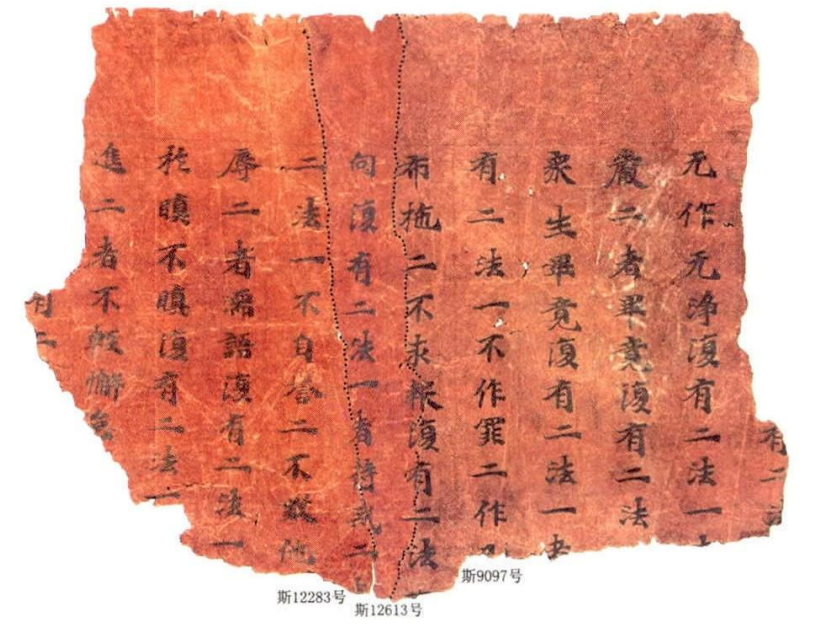 有二
无作无净復有二法一
嚴二者畢竟復有二法
衆生畢竟復有二法一者
有二法一不作罪二作
布施二不求報復有二法
向復有二法一者持戒二
二法一不自譽二不毀他
辱二者濡語復有二法一
於瞋不瞋復有二法一
進二者不懈怠
有二
斯9097号
斯12613号
斯12283号